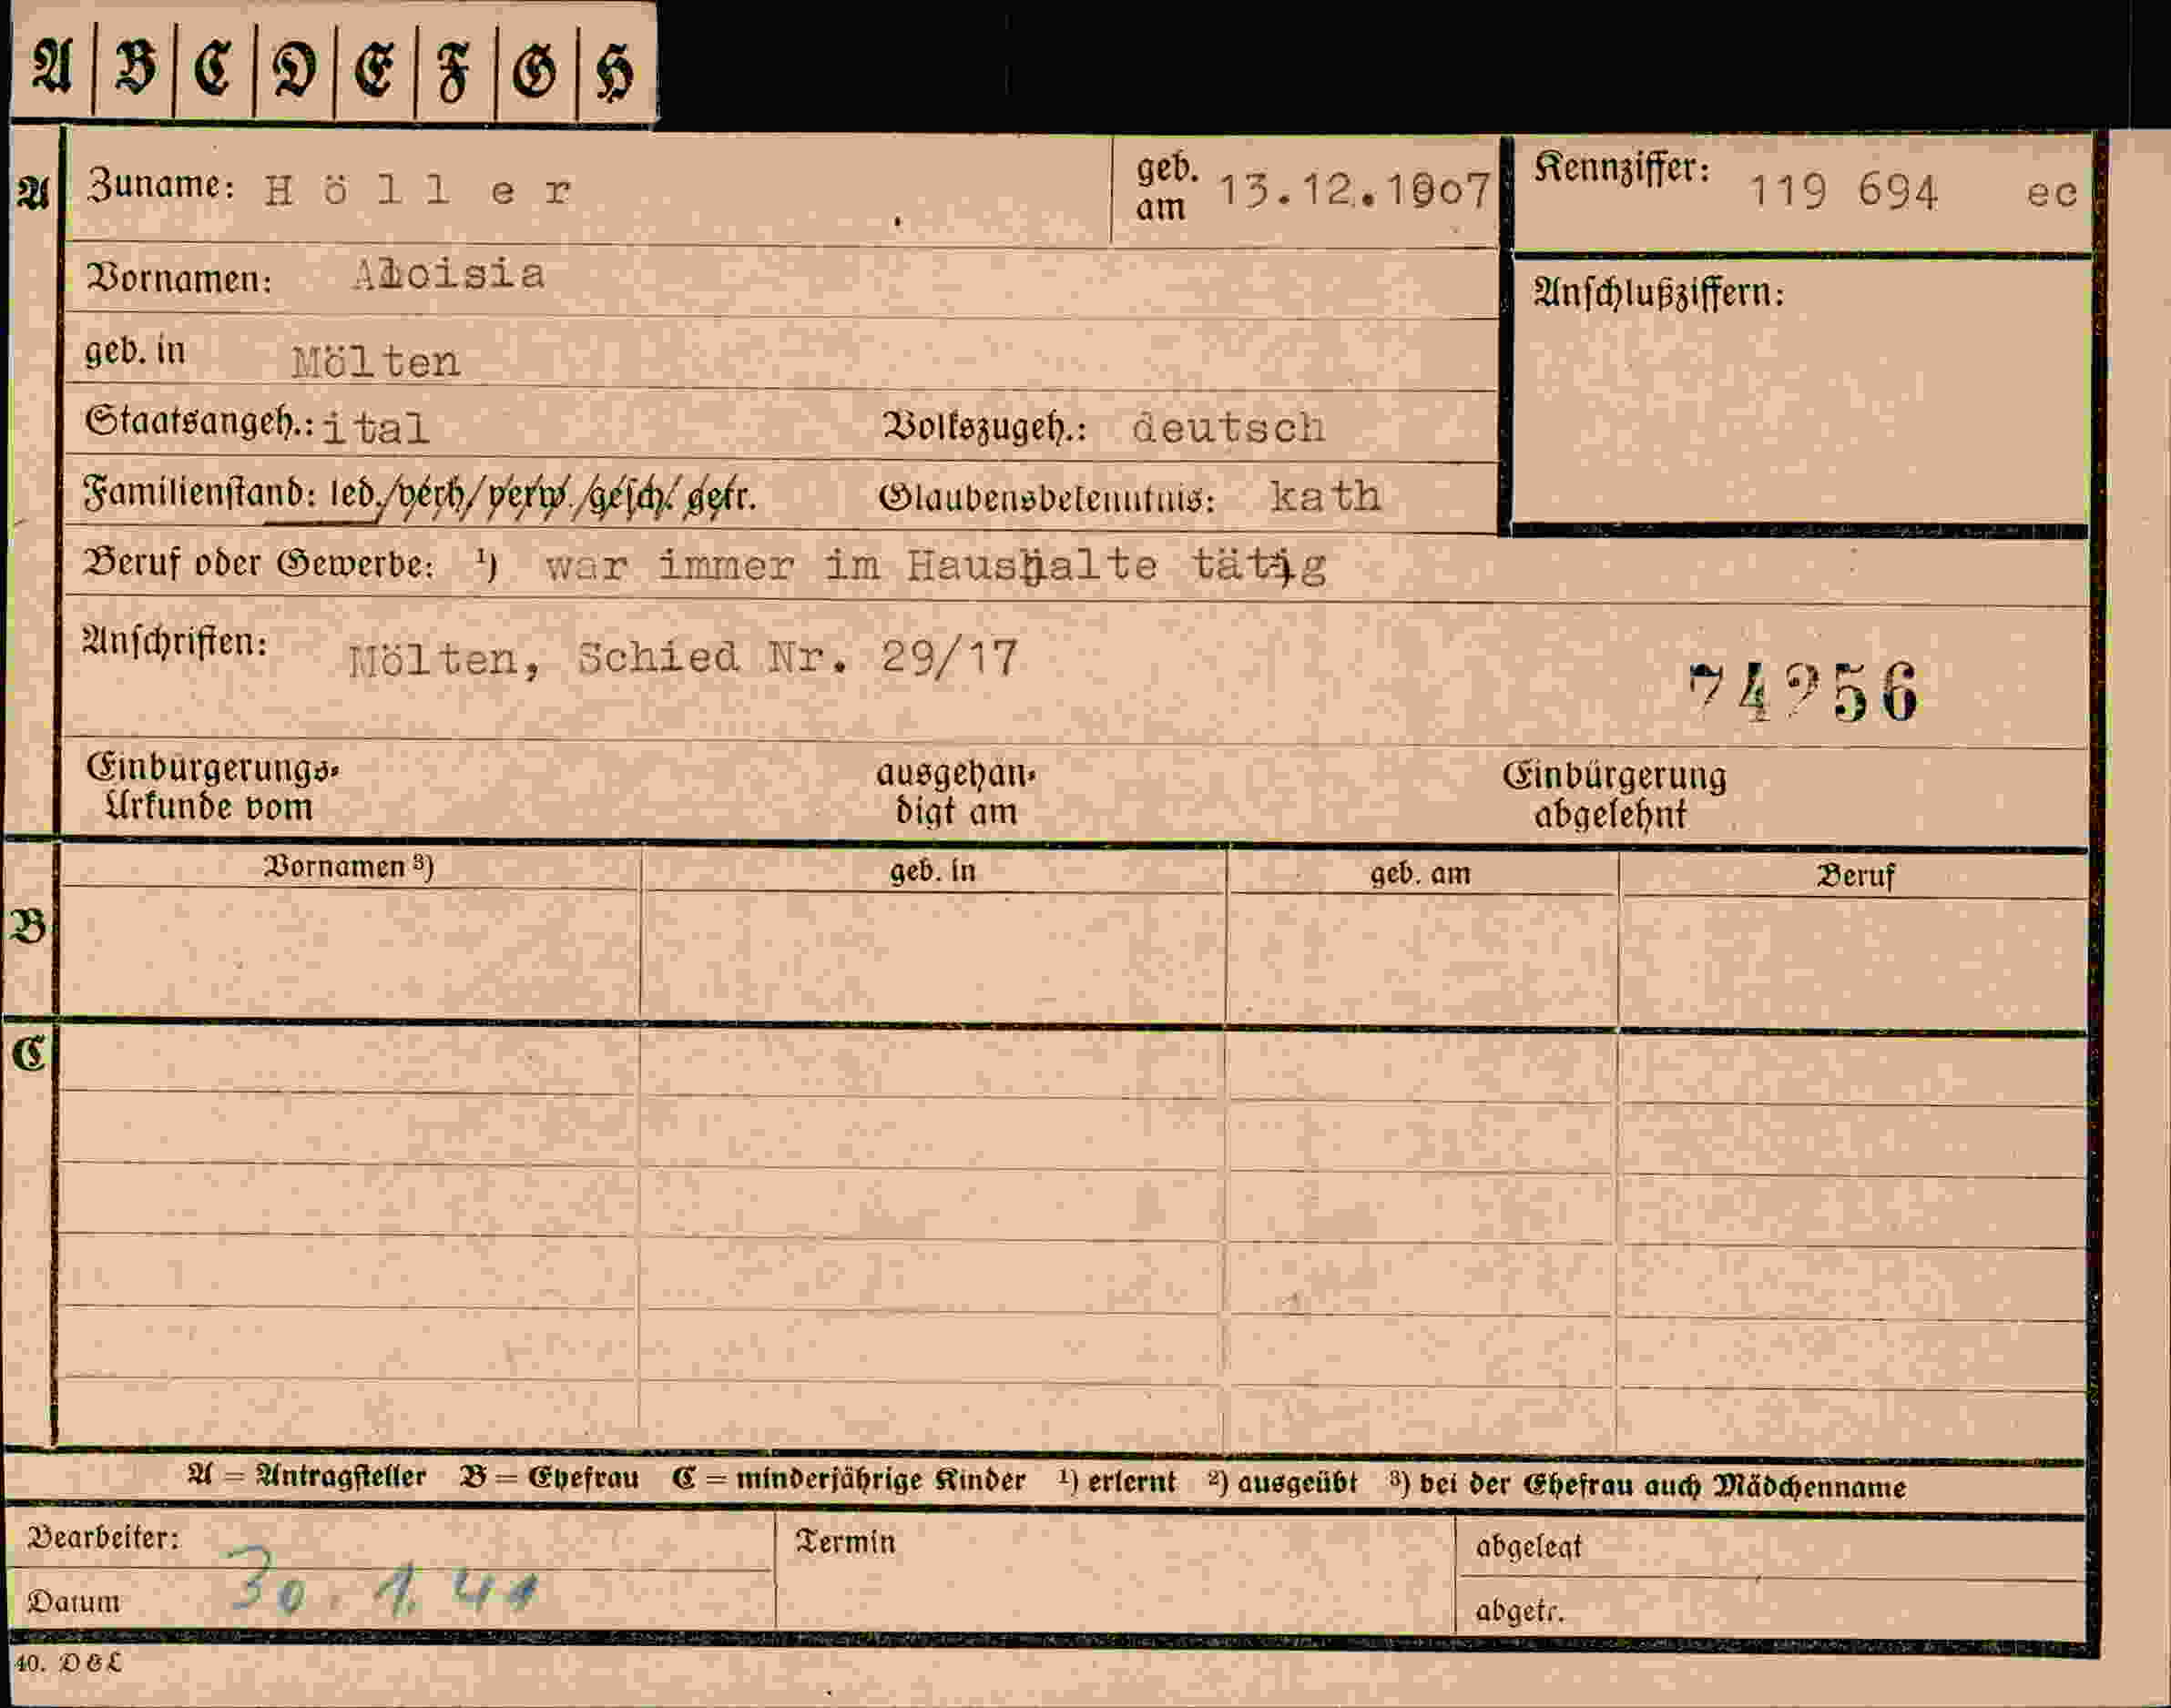 A | B | C | D | E | F | G | H
A Zuname: Höller geb. am 13.12.1907 Kennziffer: 119 694 ec
Vornamen: Aloisia Anschlußziffern:
geb. in Mölten
Staatsangeh.: ital Volkszugeh.: deutsch
Familienstand: led./verh/verw./gesch./getr. Glaubensbekenntnis: kath
Beruf oder Gewerbe: ¹) war immer im Haushalte tätig
Anschriften: Mölten, Schied Nr. 29/17
74256
Einbürgerungs- ausgehän- Einbürgerung
Urkunde vom digt am abgelehnt
Vornamen ³) geb. in geb. am Beruf
B
C
A = Antragsteller B = Ehefrau C = minderjährige Kinder ¹) erlernt ²) ausgeübt ³) bei der Ehefrau auch Mädchenname
Bearbeiter: Termin abgelegt
Datum 30.1.41 abgetr.
40. D&L